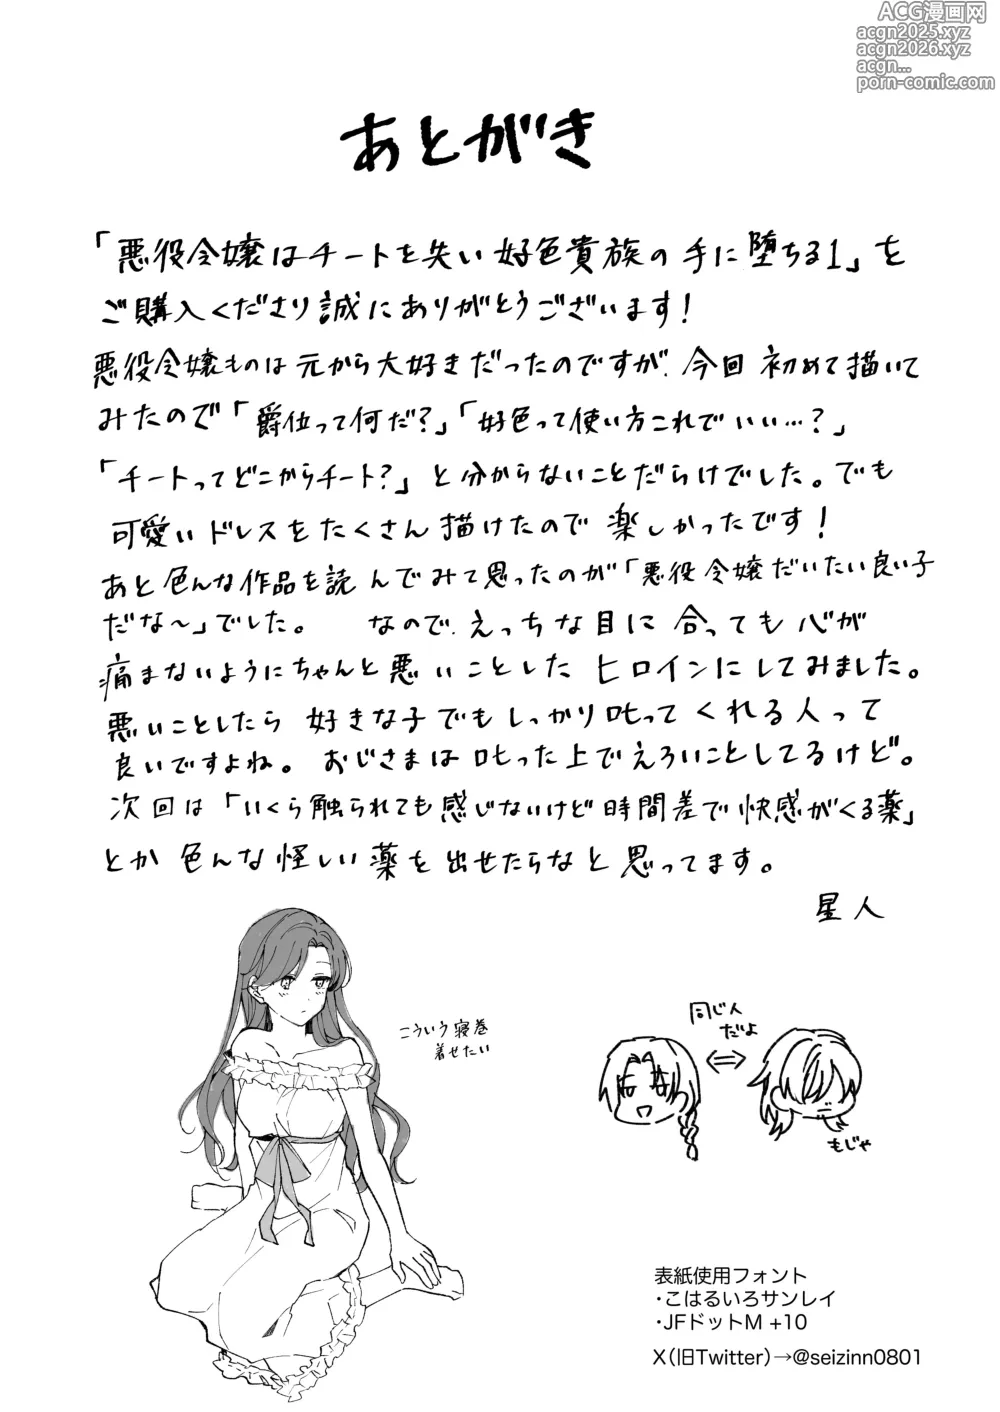 ACG漫画网
acgn2025.xyz
acgn2026.xyz
acgn...
porn-comic.com
あとがき
「悪役令嬢はチートを失い好色貴族の手に堕ちる1」を
ご購入くださり誠にありがとうございます!
悪役令嬢ものは元から大好きだったのですが、今回初めて描いて
みたので「爵位って何だ?」「好色って使い方これでいい…?」
「チートってどこからチート?」と分からないことだらけでした。でも
可愛いドレスをたくさん描けたので楽しかったです!
あと色んな作品を読んでみて思ったのが「悪役令嬢だいたい良い子
だな~」でした。 なので、えっちな目に合っても心が
痛まないようにちゃんと悪いことしたヒロインにしてみました。
悪いことしたら好きな子でもしっかり叱ってくれる人って
良いですよね。おじさまは叱った上でえろいことしてるけど。
次回は「いくら触られても感じないけど時間差で快感がくる薬」
とか色んな怪しい薬を出せたらなと思ってます。
星人
こういう寝巻
着せたい
同じ人
だよ
もじゃ
表紙使用フォント
・こはるいろサンレイ
・JFドットM +10
X(旧Twitter)→@seizinn0801